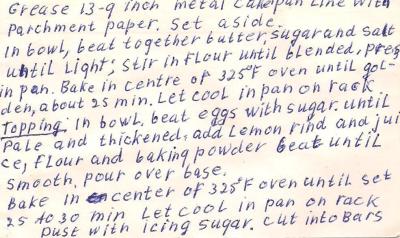 Grease 13-9 inch metal cakepan Line with
Parchment paper. Set aside.
In bowl, beat together butter, sugar and salt
until light; stir in flour until blended, pres
in pan. Bake in centre of 325°F oven until gol-
den, about 25 min. Let cool in pan on rack
Topping: In bowl, beat eggs with sugar. until
Pale and thickened; add Lemon rind and jui
ce, flour and baking powder beat until
smooth, pour over base.
Bake in center of 325°F oven until set
25 to 30 min Let cool in pan on rack
Dust with icing sugar. cut into Bars